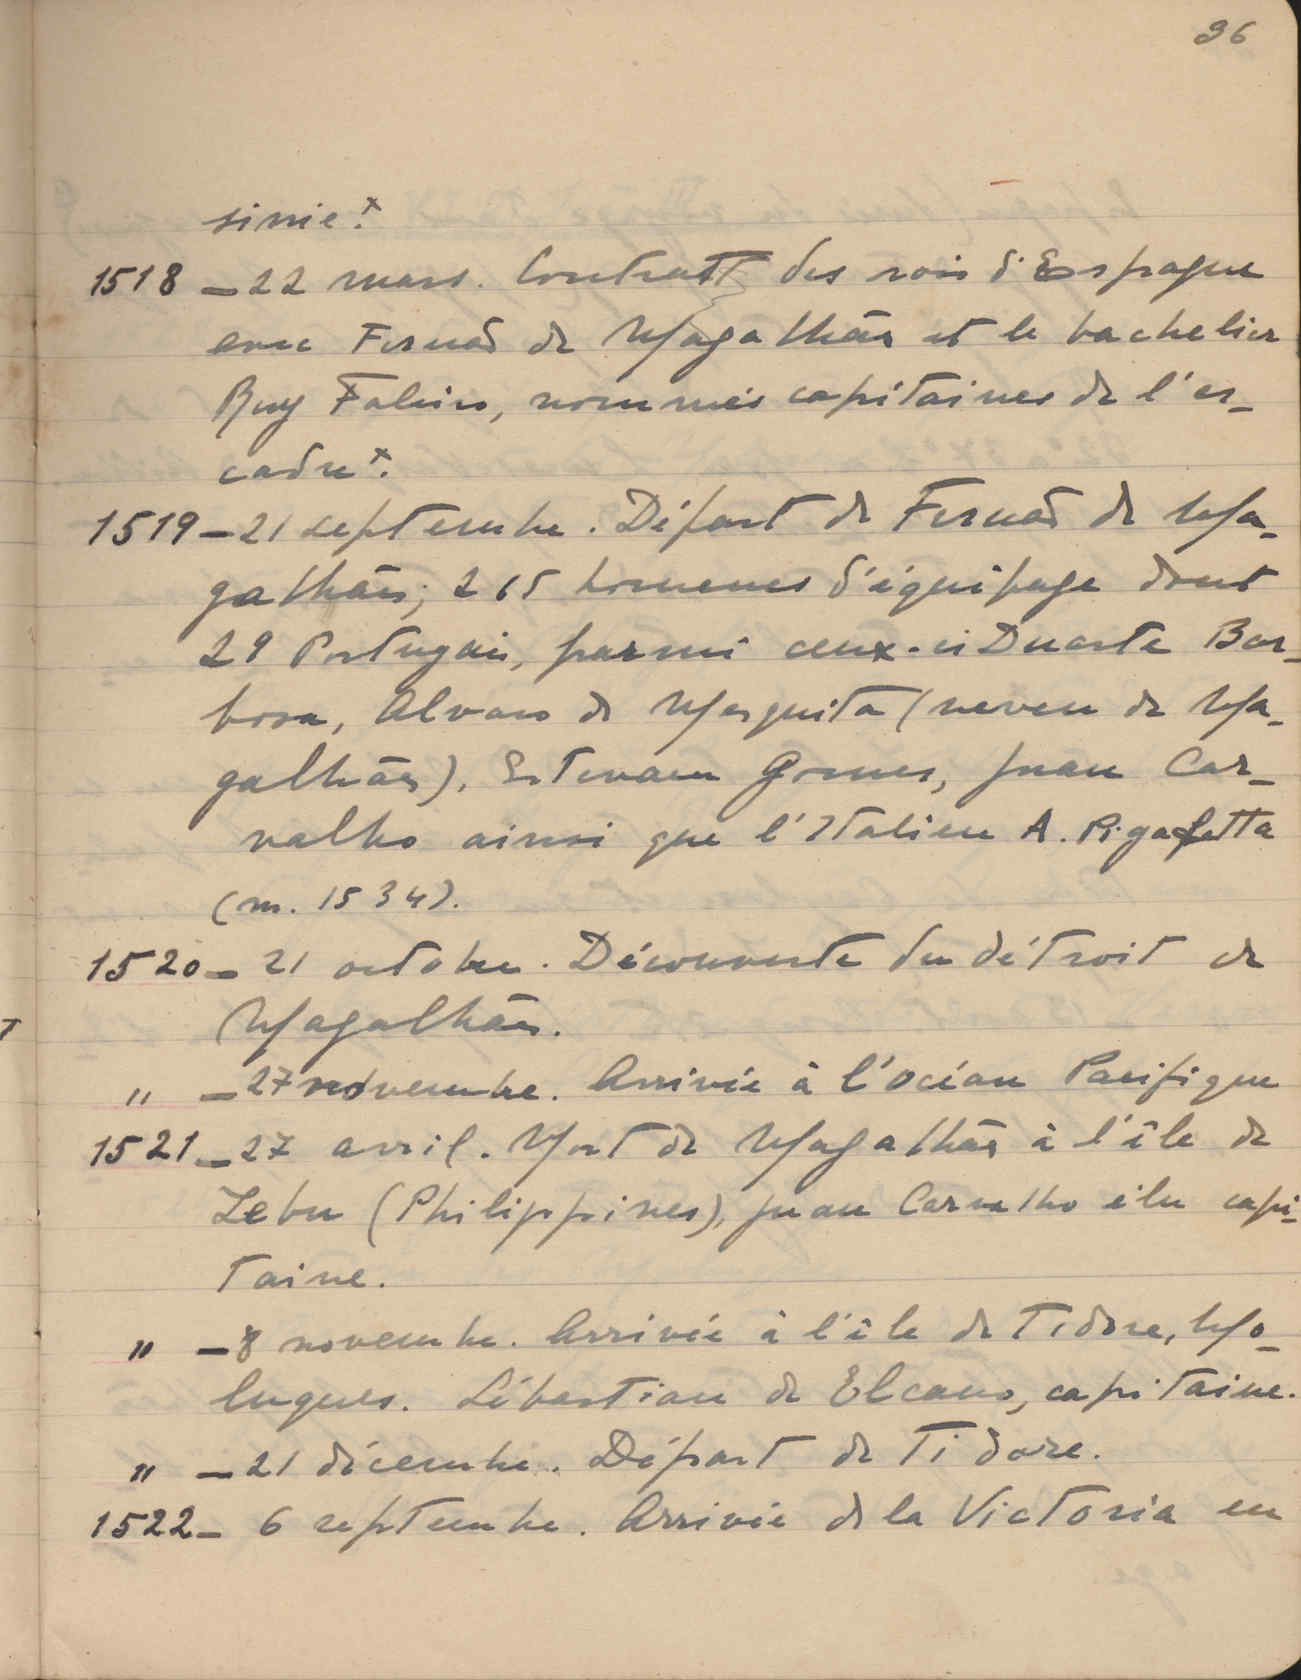 36
sinie.x
1518 - 22 mars. Contratt des rois d'Espagne
avec Fernãd de Magalhães et le bachelier
Ruy Faleiro, nommés capitaines de l'es-
cadre x.
1519 - 21 septembre. Départ de Fernãd de Ma-
galhães; 265 hommes d'équipage dont
29 Portugais, parmi ceux-ci Duarte Bar-
bosa, Alvaro de Mesquita (neveu de Ma-
galhães), Estevam Gomes, Juan Car-
valho ainsi que l'Italien A. Pigafetta
(m. 1534).
1520 - 21 octobre. Découverte du détroit de
Magalhães.
" - 27 novembre. Arrivée à l'océan Pacifique
1521 - 27 avril. Mort de Magalhães à l'île de
Zebu (Philippines), Juan Carvalho élu capi-
taine.
" - 8 novembre. Arrivée à l'île de Tidore, Mo-
luques. Sébastian de Elcano, capitaine.
" - 21 décembre. Départ de Tidore.
1522 - 6 septembre. Arrivée de la Victoria en